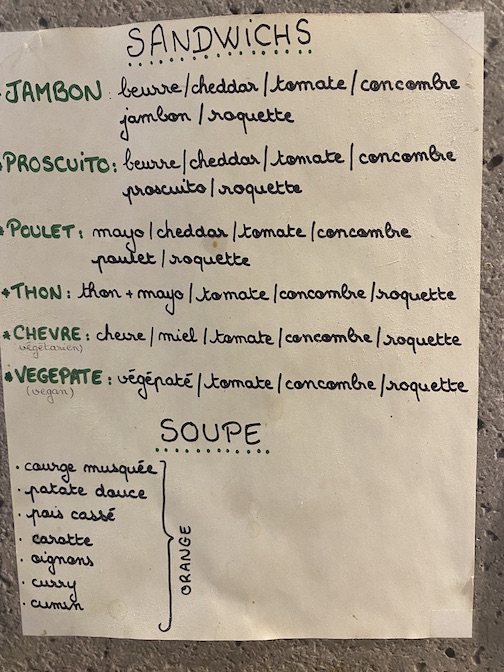 SANDWICHS
JAMBON: beurre/cheddar/tomate/concombre
jambon/roquette
PROSCUITO: beurre/cheddar/tomate/concombre
proscuito/roquette
POULET: mayo/cheddar/tomate/concombre
poulet/roquette
THON: thon + mayo/tomate/concombre/roquette
CHEVRE: chevre/miel/tomate/concombre/roquette
(végétarien)
VEGEPATE: végépaté/tomate/concombre/roquette
(vegan)
SOUPE
· courge musquée
· patate douce
· pois cassé
· carotte
· oignons
· curry
· cumin
ORANGE